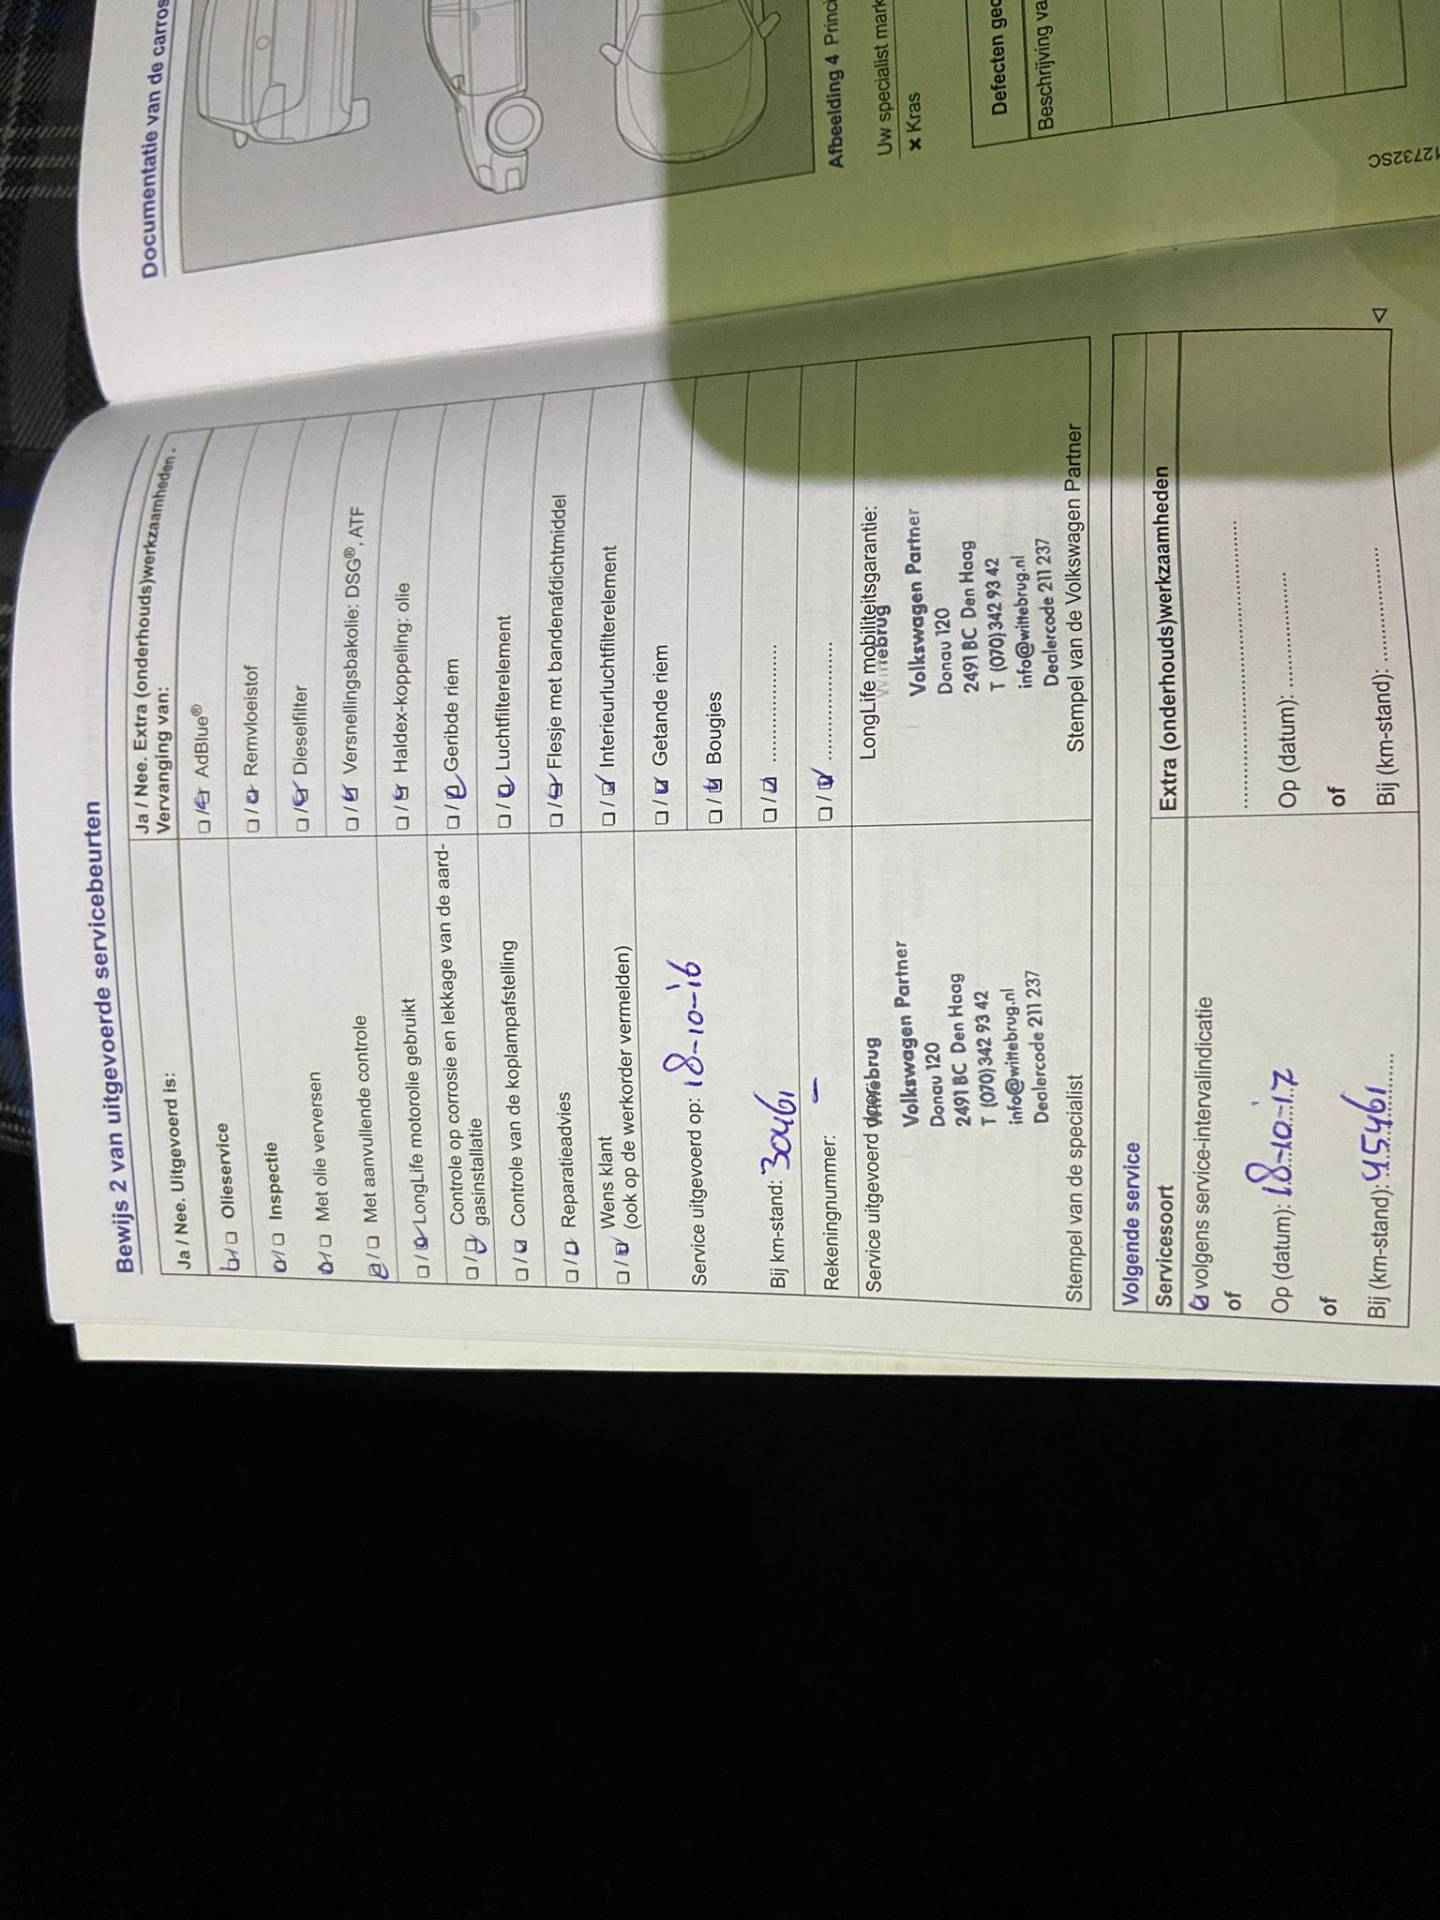 Bewijs 2 van uitgevoerde servicebeurten
Ja / Nee. Uitgevoerd is:
Olieservice
Inspectie
Met olie verversen
Met aanvullende controle
LongLife motorolie gebruikt
Controle op corrosie en lekkage van de aard-
gasinstallatie
Controle van de koplampafstelling
Reparatieadvies
Wens klant
(ook op de werkorder vermelden)
Service uitgevoerd op: 18-10-'16
Bij km-stand: 30461
Rekeningnummer: –
Service uitgevoerd
Volkswagen Partner
Donau 120
2491 BC Den Haag
T (070) 342 93 42
info@wittebrug.nl
Dealercode 211 237
Stempel van de specialist
Ja / Nee. Extra (onderhouds)werkzaamheden.
Vervanging van:
AdBlue®
Remvloeistof
Dieselfilter
Versnellingsbakolie: DSG®, ATF
Haldex-koppeling: olie
Geribde riem
Luchtfilterelement
Flesje met bandenafdichtmiddel
Interieurluchtfilterelement
Getande riem
Bougies
LongLife mobiliteitsgarantie:
Wittebrug
Volkswagen Partner
Volkswagen Partner
Donau 120
2491 BC Den Haag
T (070) 342 93 42
info@wittebrug.nl
Dealercode 211 237
Stempel van de Volkswagen Partner
Volgende service
Servicesoort
volgens service-intervalindicatie
of
Op (datum): 18-10-'17
of
Bij (km-stand): 45461
Extra (onderhouds)werkzaamheden
Op (datum):
of
Bij (km-stand):
Documentatie van de
Afbeelding 4
Uw specialist
× Kras
Defecten
Beschrijving